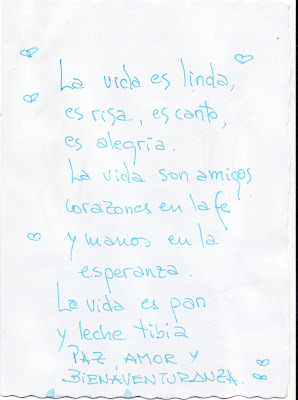 La vida es linda,
es risa, es canto,
es alegría.
La vida son amigos
corazones en la fe
y manos en la
esperanza.
La vida es pan
y leche tibia
PAZ, AMOR Y
BIENAVENTURANZA.